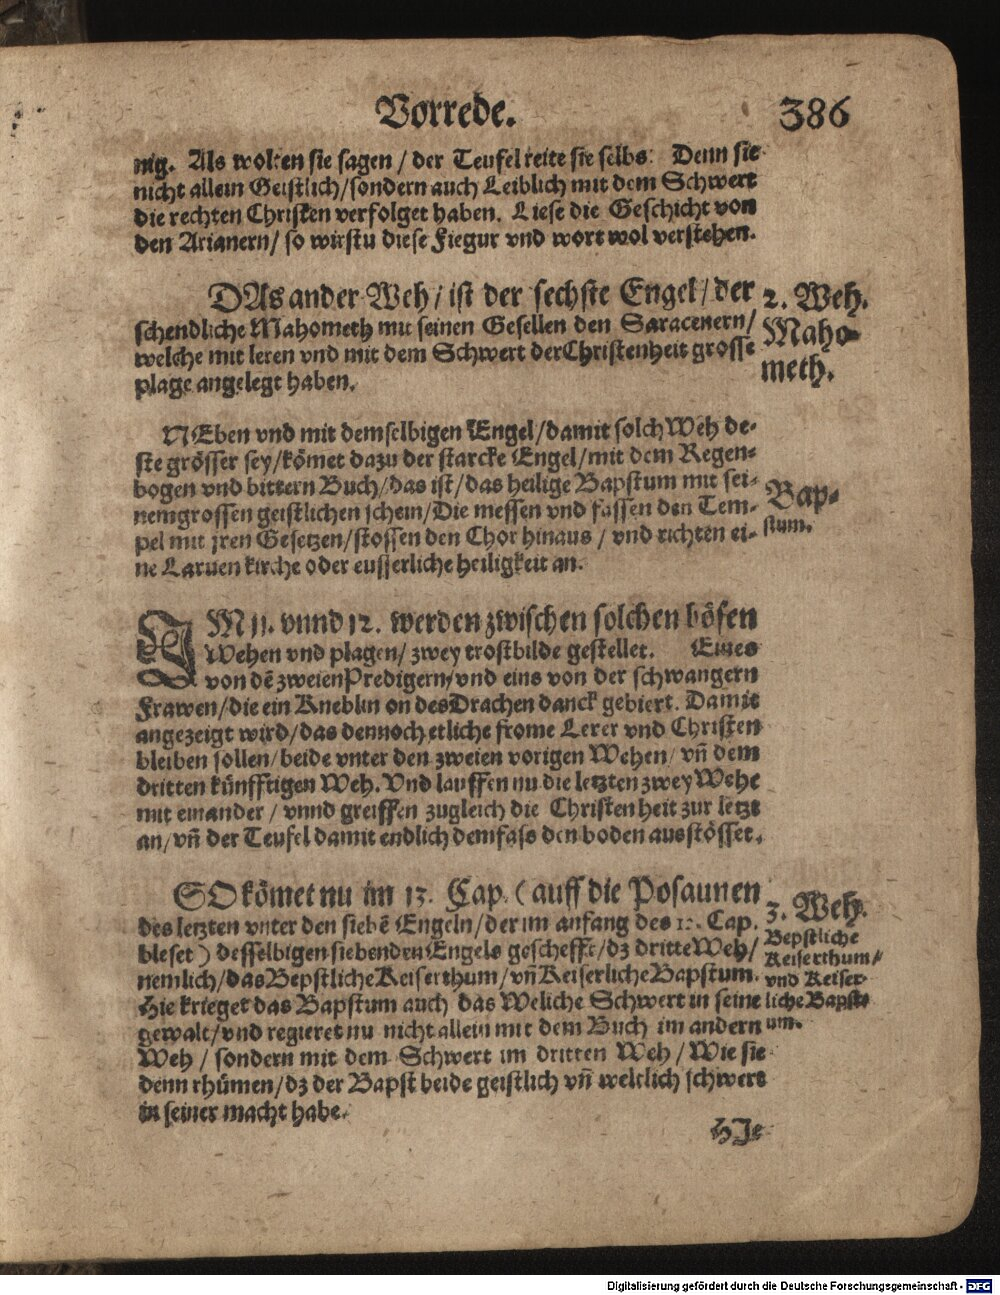 Vorrede. 386
nig. Als wolten sie sagen / der Teufel reite sie selbs. Denn sie
nicht allein Geistlich/sondern auch Leiblich mit dem Schwert
die rechten Christen verfolget haben. Liese die Geschicht von
den Arianern/ so wirstu diese Fiegur vnd wort wol verstehen.
DAs ander Weh/ ist der sechste Engel/ der
schendliche Mahometh mit seinen Gesellen den Saracenern/
welche mit leren vnd mit dem Schwert der Christenheit grosse
plage angelegt haben.
2. Weh.
Maho-
meth.
NEben vnd mit demselbigen Engel/damit solch Weh de-
ste grösser sey/kömet dazu der starcke Engel/mit dem Regen-
bogen vnd bittern Buch/das ist/das heilige Bapstum mit sei-
nem grossen geistlichen schein/Die messen vnd fassen den Tem-
pel mit jren Gesetzen/stossen den Chor hinaus / vnd richten ei-
ne Laruen kirche oder eusserliche heiligkeit an.
Bap-
stum.
IM 11. vnnd 12. werden zwischen solchen bösen
Wehen vnd plagen/ zwey trostbilde gestellet. Eines
von dē zweien Predigern/vnd eins von der schwangern
Frawen/die ein Kneblin on des Drachen danck gebiert. Damit
angezeigt wird/das dennoch etliche frome Lerer vnd Christen
bleiben sollen/beide vnter den zweien vorigen Wehen/ vn̄ dem
dritten künfftigen Weh. Vnd lauffen nu die letzten zwey Wehe
mit einander / vnnd greiffen zugleich die Christenheit zur letzt
an/vn̄ der Teufel damit endlich dem fass den boden ausstösset.
SO kömet nu im 13. Cap. (auff die Posaunen
des letzten vnter den siebē Engeln/der im anfang des 12. Cap.
bleset) desselbigen siebenden Engels gescheffte/dz dritte Weh/
nemlich/das Bepstliche Keiserthum/vn̄ Keiserliche Bapstum.
Hie krieget das Bapstum auch das Weltliche Schwert in seine
gewalt/vnd regieret nu nicht allein mit dem Buch im andern
Weh / sondern mit dem Schwert im dritten Weh/ Wie sie
denn rhümen/dz der Bapst beide geistlich vn̄ weltlich schwert
in seiner macht habe.
3. Weh.
Bepstliche
Keiserthum/
vnd Keiser-
liche Bapst-
um.
HJe
Digitalisierung gefördert durch die Deutsche Forschungsgemeinschaft - DFG